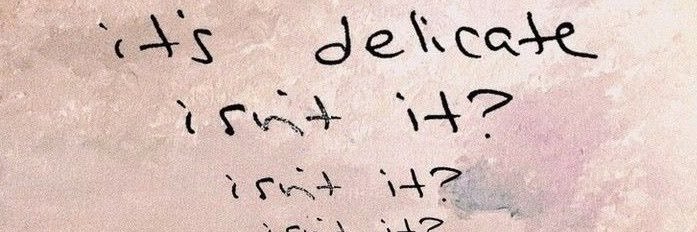 it's delicate
isn't it?
isn't it?
isn't it?